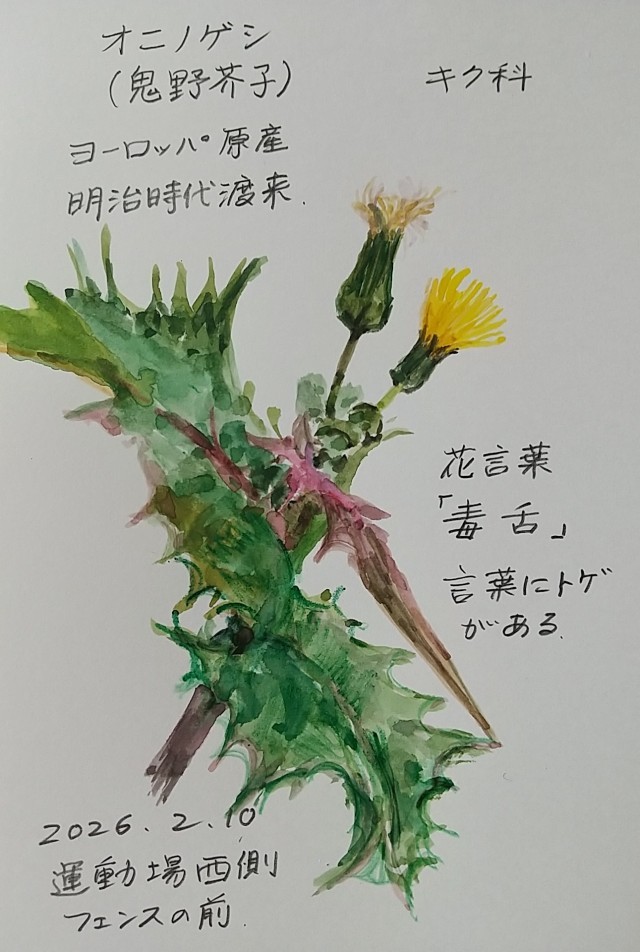 オニノゲシ
(鬼野芥子)
キク科
ヨーロッパ原産
明治時代渡来.
花言葉
「毒舌」
言葉にトゲ
がある.
2026.2.10
運動場西側
フェンスの前.